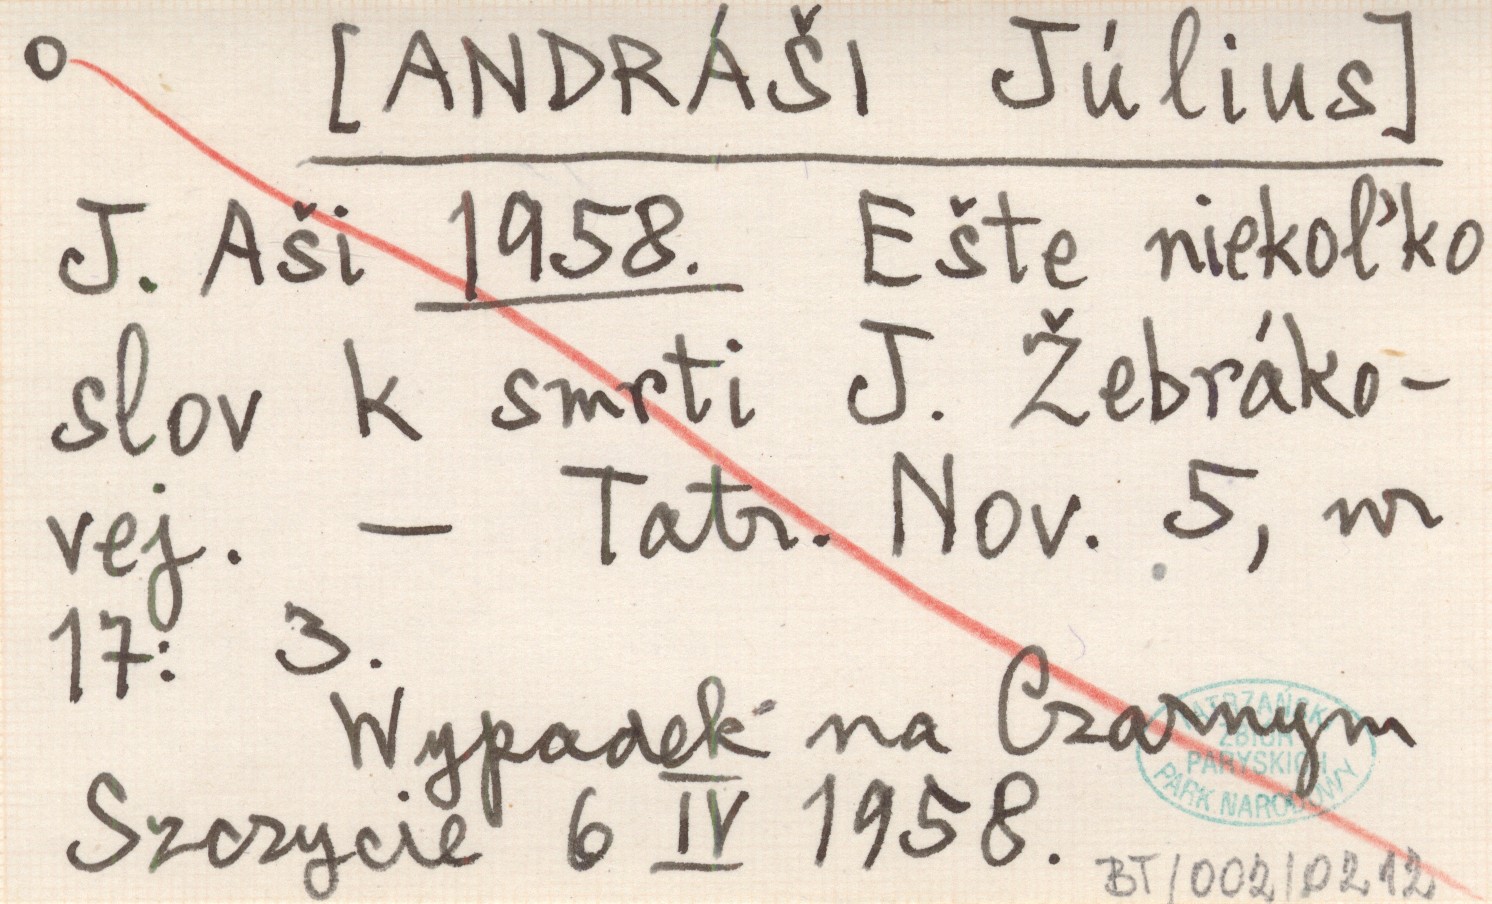 o [ANDRÁŠI Július]
J. Aši 1958. Ešte niekoľko
slov k smrti J. Žebráko-
vej. — Tatr. Nov. 5, nr
17: 3.
Wypadek na Czarnym
Szczycie 6 IV 1958.
TATRZAŃSKI
ZBIOR
PARYSKICH
PARK NARODOWY
BT/002/0212